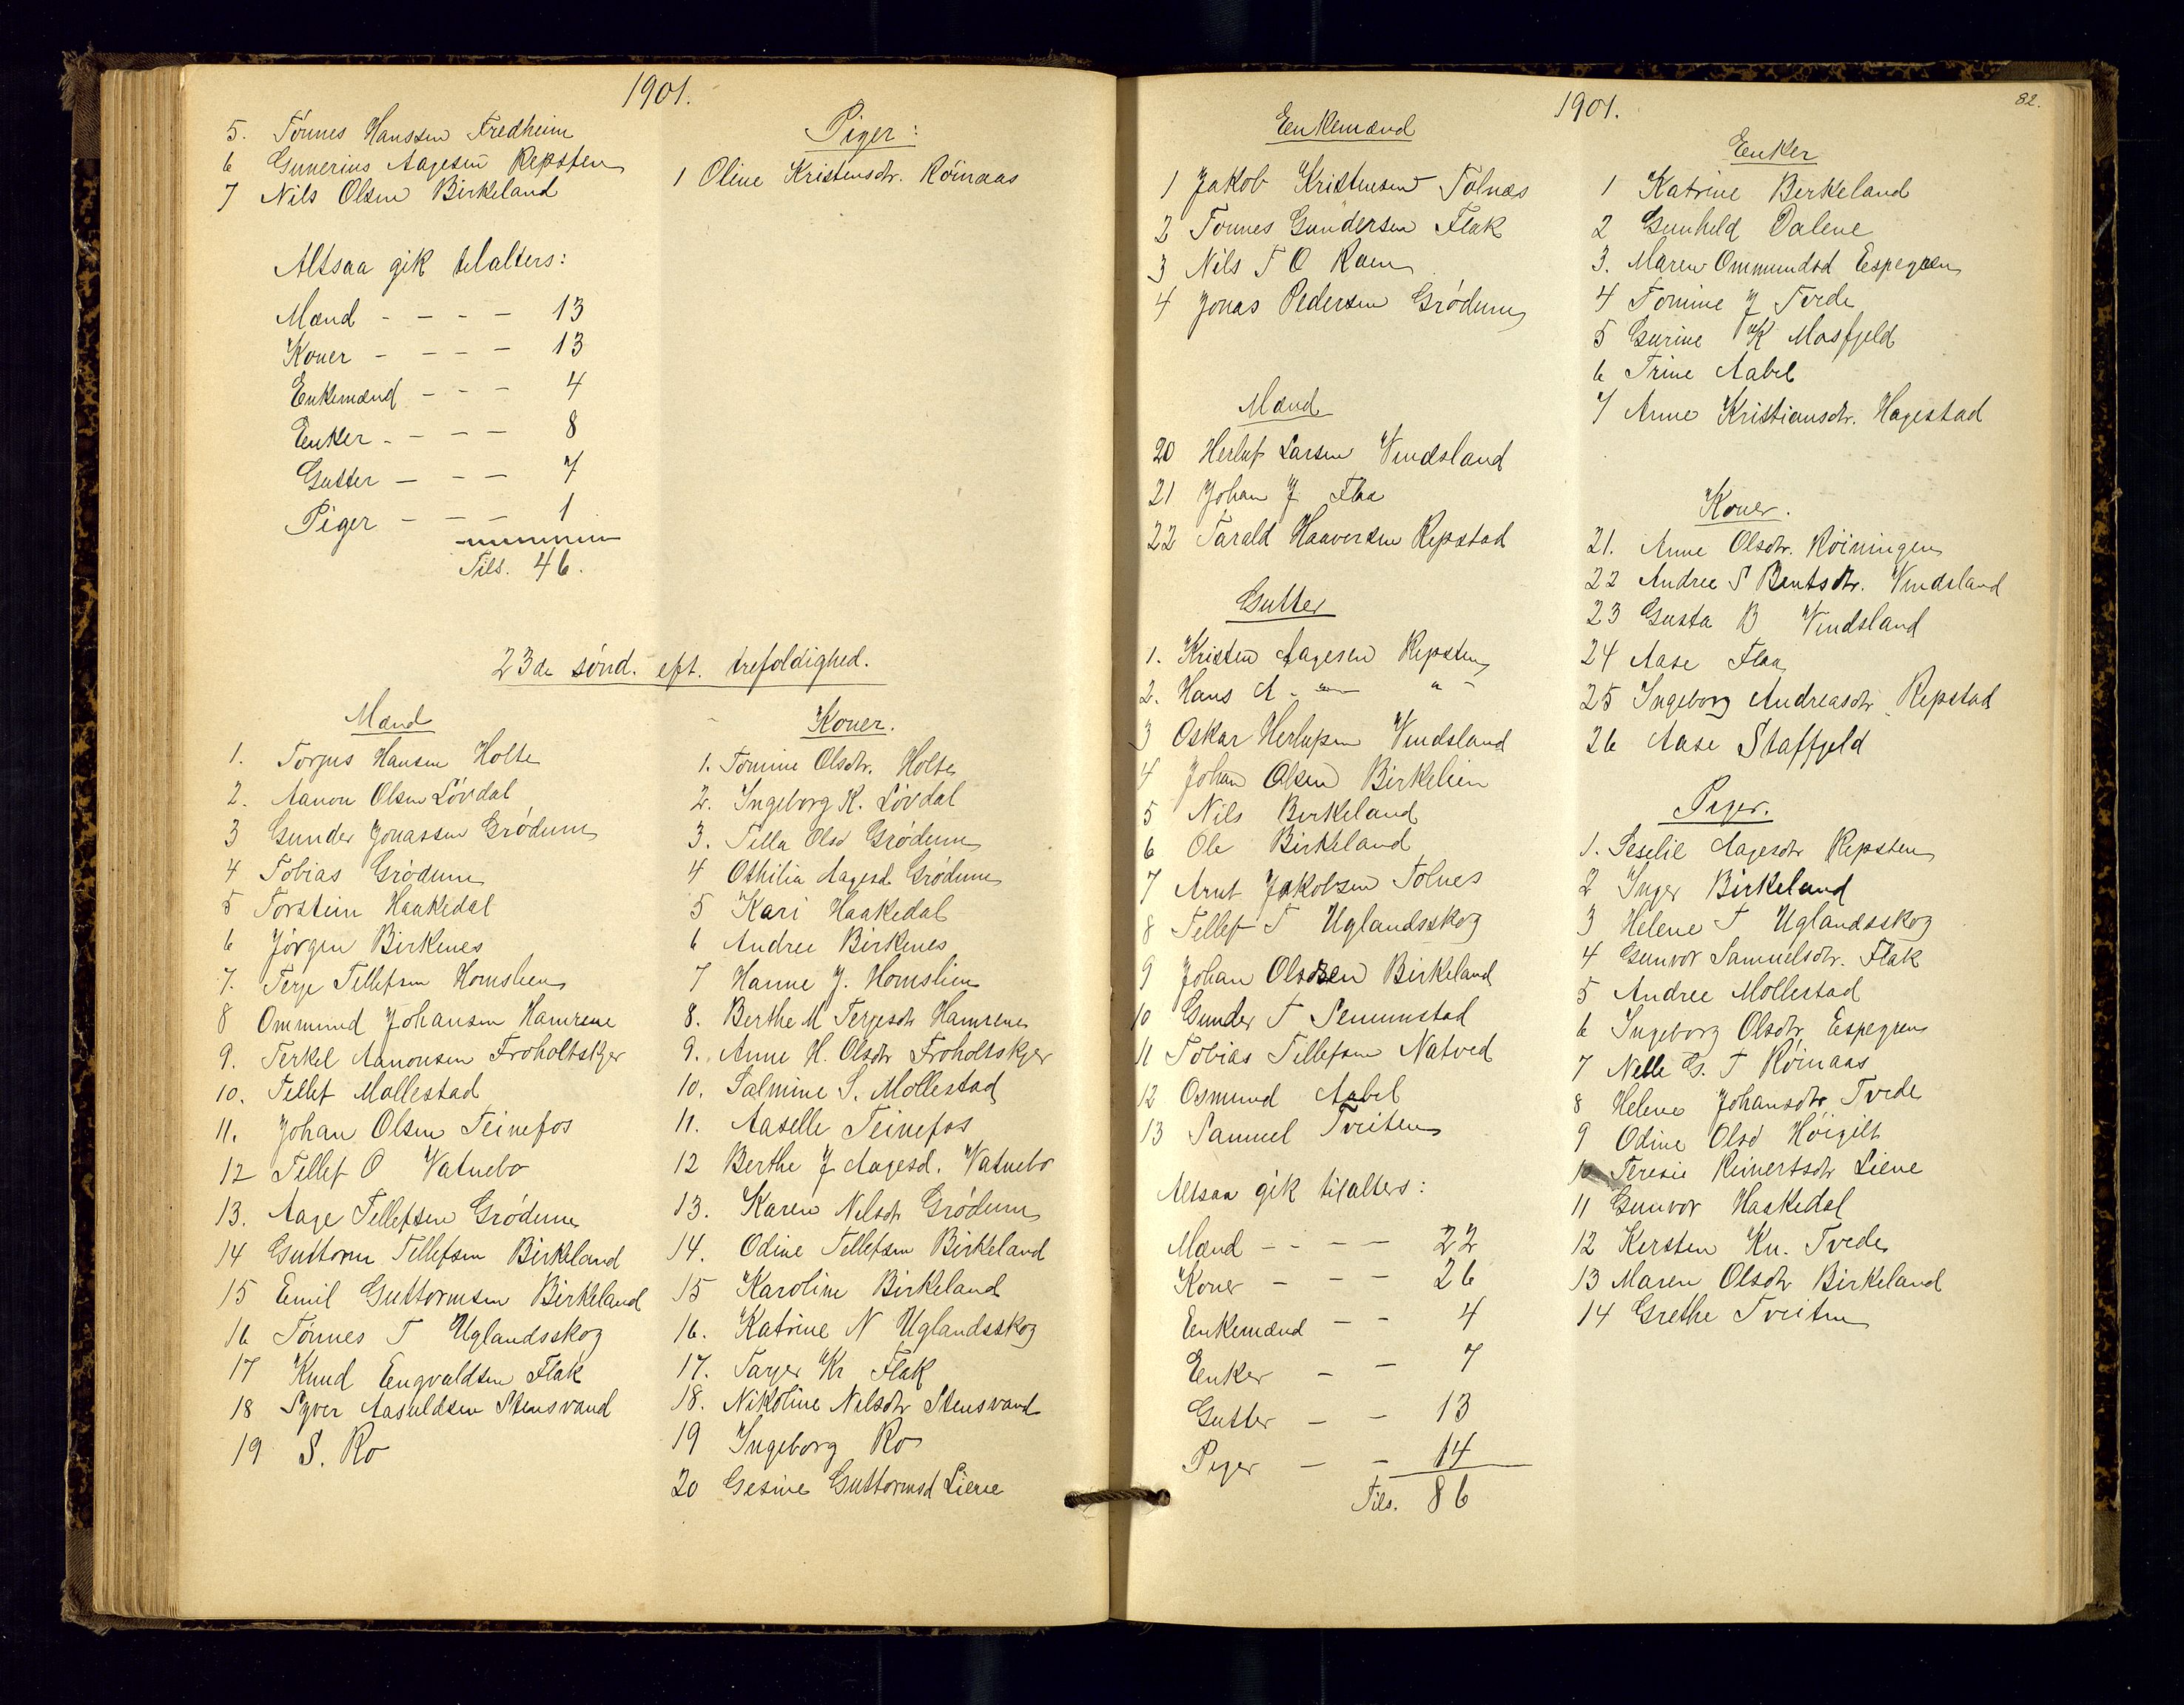 1901.
5. Tönnes Hanssen Fredheim
6 Gunerius Aagesen Repsten
7 Nils Olsen Birkeland
Piger:
1 Oline Kristensdr. Röinaas
Altsaa gik tilalters:
Mænd - - - - 13
Koner - - - - 13
Enkemænd - - - 4
Enker - - - - 8
Gutter - - - 7
Piger - - - 1
Tils. 46.
23de sönd. eft. trefoldighed.
Mænd
1. Torjus Hansen Holte
2. Aanon Olsen Lövdal
3 Gunder Jonassen Grödum
4 Tobias Grödum
5 Torstein Haakedal
6 Jörgen Birkenes
7. Terje Tellefsen Homslien
8 Ommund Johansen Hamrene
9. Terkel Aanonsen Froholtskjer
10. Tellef Mollestad
11. Johan Olsen Teinefos
12 Tellef O Vatnebo
13. Aage Tellefsen Grödum
14 Guttorm Tellefsen Birkeland
15 Emil Guttormsen Birkeland
16 Tönnes T Uglandsskog
17 Knud Engvaldsen Flak
18 Syver Aasuldsen Stensvand
19 S. Ro
Koner.
1. Tomine Olsdtr. Holte
2. Ingeborg K. Lövdal
3. Tella Olsd Grödum
4 Othilia Aagesd. Grödum
5 Kari Haakedal
6 Andree Birkenes
7 Hanne J. Homslien
8. Berthe M Terjesdtr Hamrene
9. Anne H. Olsdtr Froholtskjer
10. Salmine S. Mollestad
11. Aaselle Teinefos
12 Berthe J Aagesd. Vatnebo
13. Karen Nilsdtr Grödum
14. Odine Tellefsen Birkeland
15 Karoline Birkeland
16. Katrine N Uglandsskog
17. Tarjer Kr Flak
18. Nikoline Nilsdtr Stensvand
19 Ingeborg Ro
20 Gesine Guttormsd Liene
1901.
82.
Enkemænd
1 Jakob Kristensen Tolnæs
2 Tonnes Gundersen Flak
3 Nils T O Roen
4 Jonas Pedersen Grödum
Mænd
20 Herluf Larsen Vindsland
21 Johan J Flaa
22 Tarald Haaversen Repstad
Gutter
1. Kristen Aagesen Repsten
2. Hans A - " - " -
3 Oskar Herlufsen Vindsland
4 Johan Olsen Birkelien
5 Nils Birkeland
6 Ole Birkeland
7 Arnt Jakobsen Tolnes
8 Tellef T Uglandsskog
9 Johan Olsen Birkeland
10 Gunder T Senumstad
11 Tobias Tellefsen Natved
12 Osmund Aabel
13 Samuel Tveiten
Altsaa gik tilalters:
Mænd - - - - 22
Koner - - - 26
Enkemænd - - 4
Enker - - 7
Gutter - - 13
Piger - - 14
Tils. 86
Enker
1 Katrine Berkeland
2 Gunheld Dalene
3. Maren Ommundsd Espegren
4 Tomine J Tvede
5 Gurine K Mosfjeld
6 Trine Aabel
7 Anne Kristiansdtr. Hagestad
Koner.
21. Anne Olsdtr. Röiningen
22 Andree S Bentsdtr. Vindsland
23 Gusta B Vindsland
24 Aase Flaa
25 Ingeborg Andreasdtr Repstad
26 Aase Staffjeld
Piger.
1. Seselie Aagesdtr Repsten
2 Inger Birkeland
3 Helene T Uglandsskog
4 Gunvor Samuelsdtr. Flak
5 Andree Mollestad
6 Ingeborg Olsdtr Espegren
7 Nelle G. T Röinaas
8 Helene Johansdtr Tvede
9 Odine Olsd Höigilt
10 Teresie Reinertsdtr Liene
11 Gunvor Haakedal
12 Kersten Kn. Tvede
13 Maren Olsdtr Birkeland
14 Grethe Tveiten